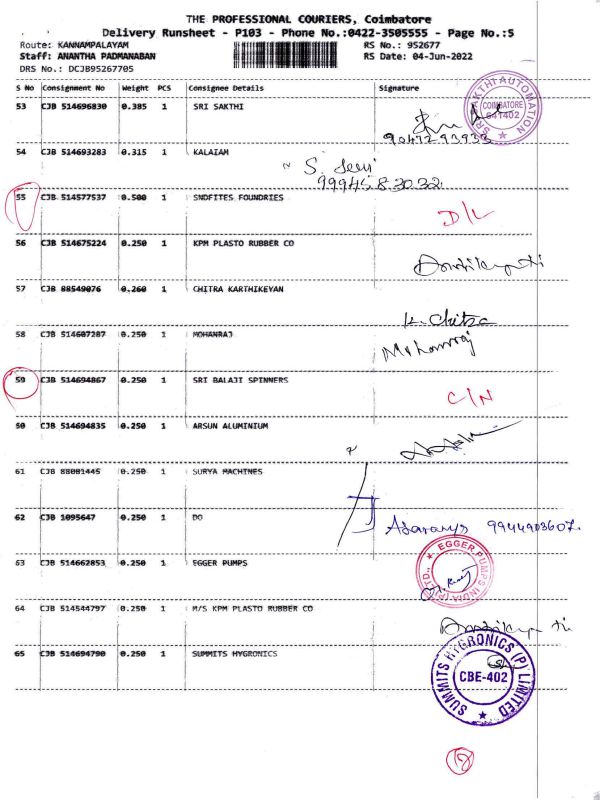 THE PROFESSIONAL COURIERS, Coimbatore
Delivery Runsheet - P103 - Phone No.:0422-3505555 - Page No.:5
Route: KANNAMPALAYAM RS No.: 952677
Staff: ANANTHA PADMANABAN RS Date: 04-Jun-2022
DRS No.: DCJB95267705
S No Consignment No Weight PCS Consignee Details Signature
53 CJB 514696830 0.385 1 SRI SAKTHI
SRI SAKTHI AUTOMATION COIMBATORE 641402
54 CJB 514693283 0.315 1 KALAIAM
99945 8 30 32
55 CJB 514577537 0.500 1 SNDFITES FOUNDRIES
D/L
56 CJB 514675224 0.250 1 KPM PLASTO RUBBER CO
57 CJB 88549076 0.260 1 CHITRA KARTHIKEYAN
K. Chitra
58 CJB 514607287 0.250 1 MOHANRAJ
Mohanraj
59 CJB 514694867 0.250 1 SRI BALAJI SPINNERS
C/N
60 CJB 514694835 0.250 1 ARSUN ALUMINIUM
61 CJB 88081445 0.250 1 SURYA MACHINES
62 CJB 1095647 0.250 1 DO
9944903607
63 CJB 514662853 0.250 1 EGGER PUMPS
EGGER PUMPS INDIA (P) LTD.,
64 CJB 514544797 0.250 1 M/S KPM PLASTO RUBBER CO
65 CJB 514694790 0.250 1 SUMMITS HYGRONICS
SUMMITS HYGRONICS (P) LIMITED
CBE-402